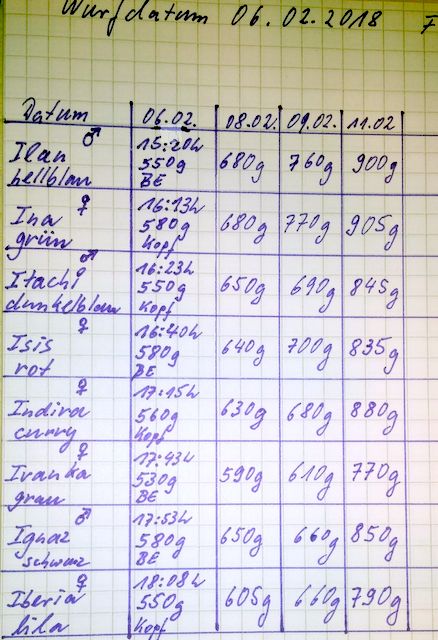 Wurfdatum 06.02.2018 F
Datum 06.02. 08.02. 09.02. 11.02
Ilan ♂ 15:20h 680g 760g 900g
hellblau 550g
BE
Ina ♀ 16:13h 680g 770g 905g
grün 580g
Kopf
Itachi ♂ 16:23h 650g 690g 845g
dunkelblau 550g
Kopf
Isis ♀ 16:40h 640g 700g 835g
rot 580g
BE
Indira ♀ 17:15h 630g 680g 880g
curry 560g
Kopf
Ivanka ♀ 17:43h 590g 610g 770g
grau 530g
BE
Ignaz ♂ 17:53h 650g 660g 850g
schwarz 580g
BE
Iberia ♀ 18:08h 605g 660g 790g
lila 550g
Kopf